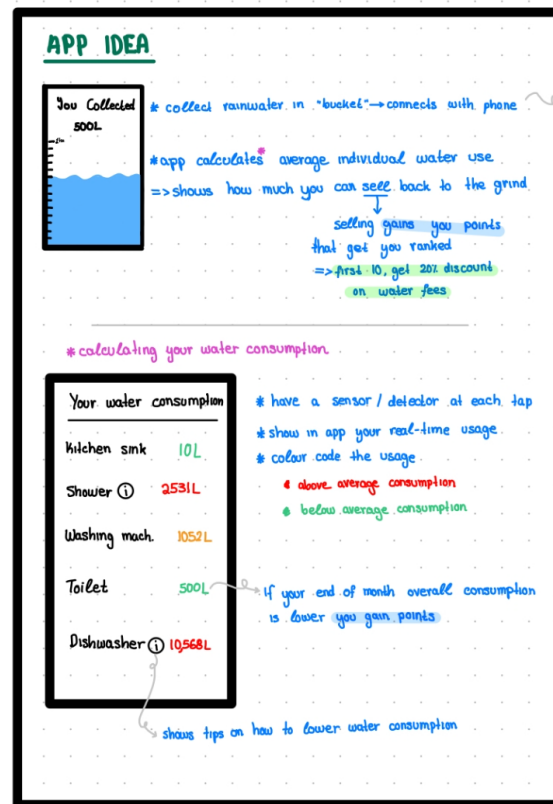 APP IDEA
You Collected
500L
* collect rainwater in "bucket" → connects with phone
* app calculates* average individual water use
=> shows how much you can sell back to the grind
selling gains you points
that get you ranked
=> first 10, get 20% discount
on water fees
* calculating your water consumption
Your water consumption
Kitchen sink 10L
Shower ⓘ 2531L
Washing mach. 1052L
Toilet 500L
Dishwasher ⓘ 10,568L
* have a sensor / detector at each tap
* show in app your real-time usage
* colour code the usage
• above average consumption
• below average consumption
If your end of month overall consumption
is lower you gain points
shows tips on how to lower water consumption